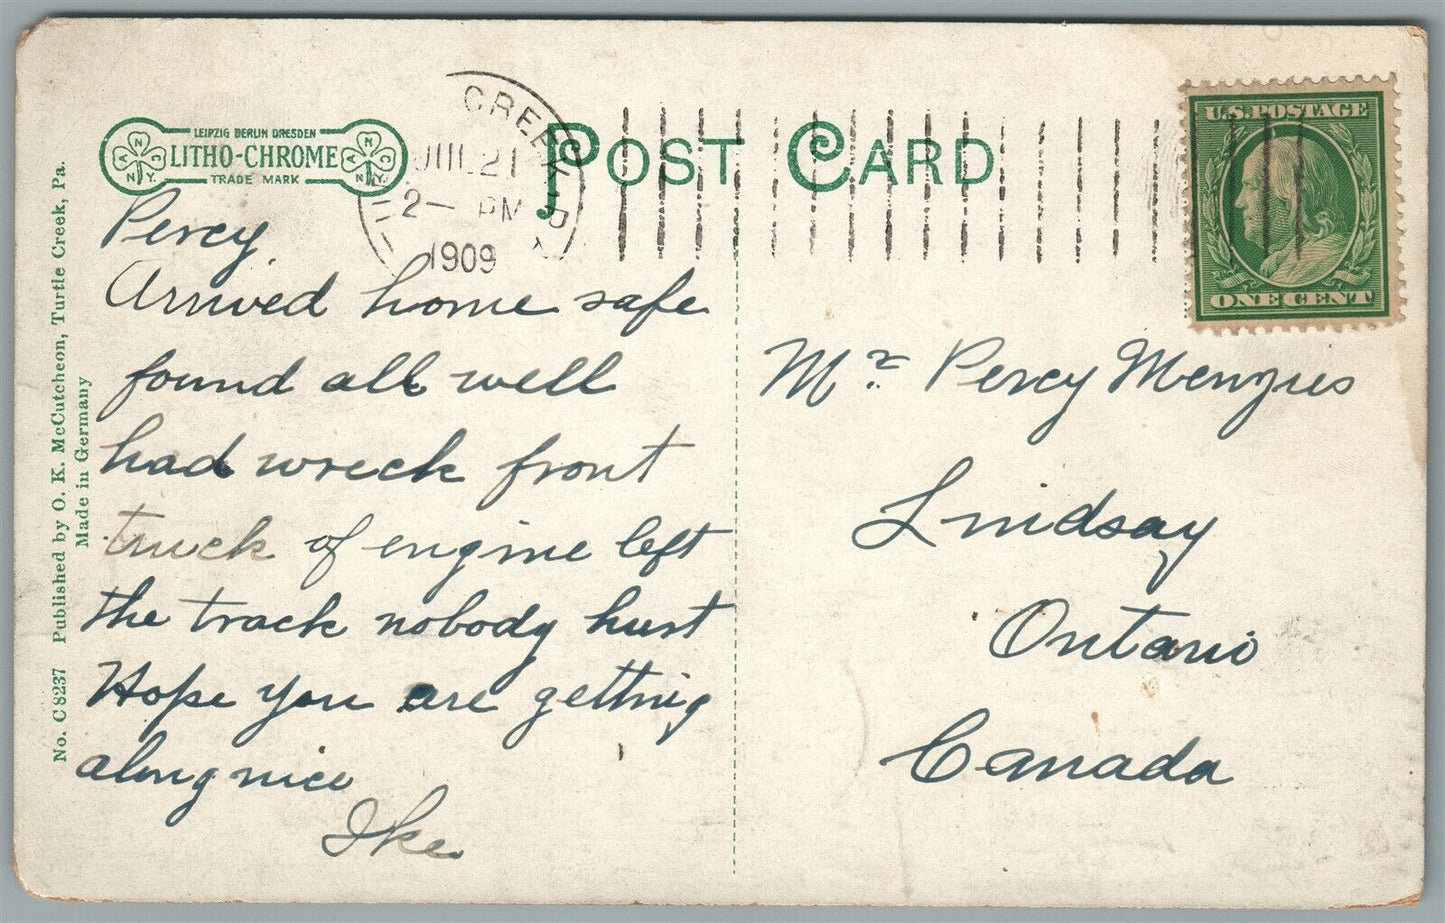 POST CARD
LEIPZIG BERLIN DRESDEN
LITHO-CHROME
TRADE MARK
CREEK, P
JUL 21
2— PM
1909
U.S. POSTAGE
ONE CENT
Percy
Arrived home safe
found all well
had wreck front
truck of engine left
the track nobody hurt
Hope you are getting
along nice
Ike
Mr. Percy Menzies
Lindsay
Ontario
Canada
No. C 8237 Published by O. K. McCutcheon, Turtle Creek, Pa.
Made in Germany